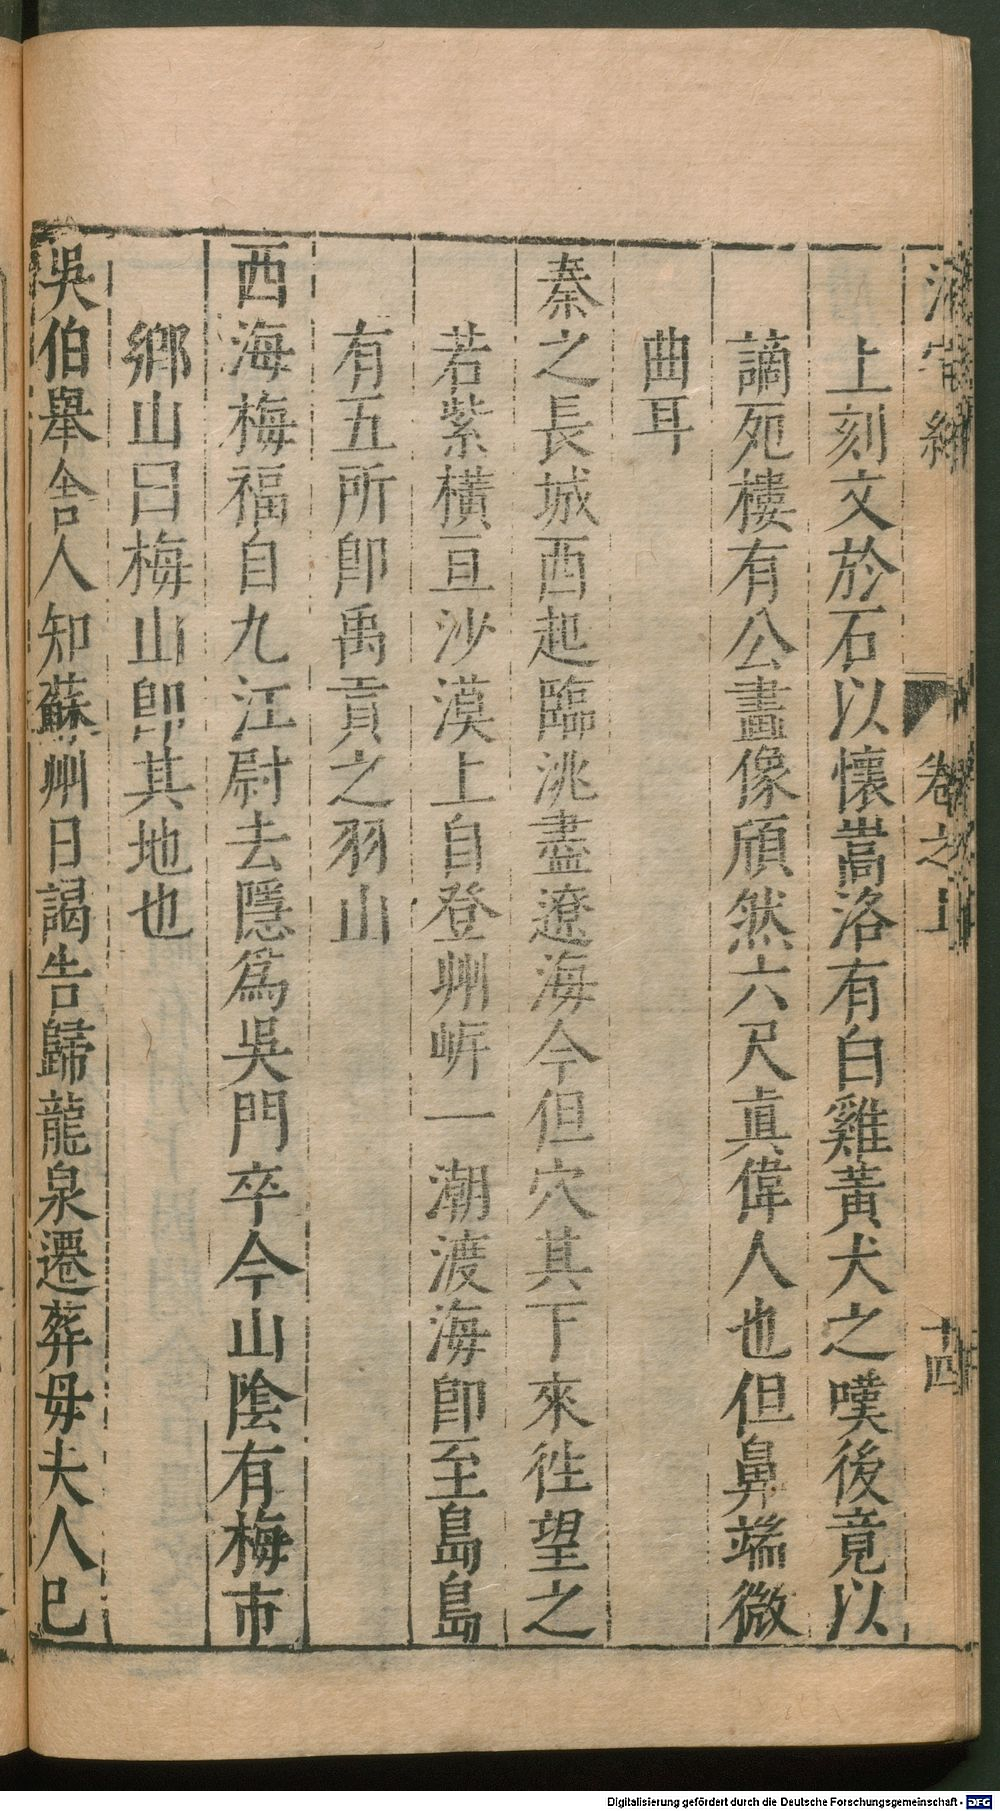 卷之五
十四
上刻文於石以懷嵩洛有白雞黃犬之嘆後竟以
謫死樓有公畫像頎然六尺真偉人也但鼻端微
曲耳
秦之長城酉起臨洮盡遼海今但穴其下來徃望之
若紫橫亘沙漠上自登州㟁一潮渡海即至島島
有五所即禹貢之羽山
西海梅福自九江尉去隱爲吳門卒今山陰有梅市
鄉山曰梅山即其地也
吳伯舉舍人知蘇州日謁告歸龍泉遷葬毋夫人巳
Digitalisierung gefördert durch die Deutsche Forschungsgemeinschaft - DFG